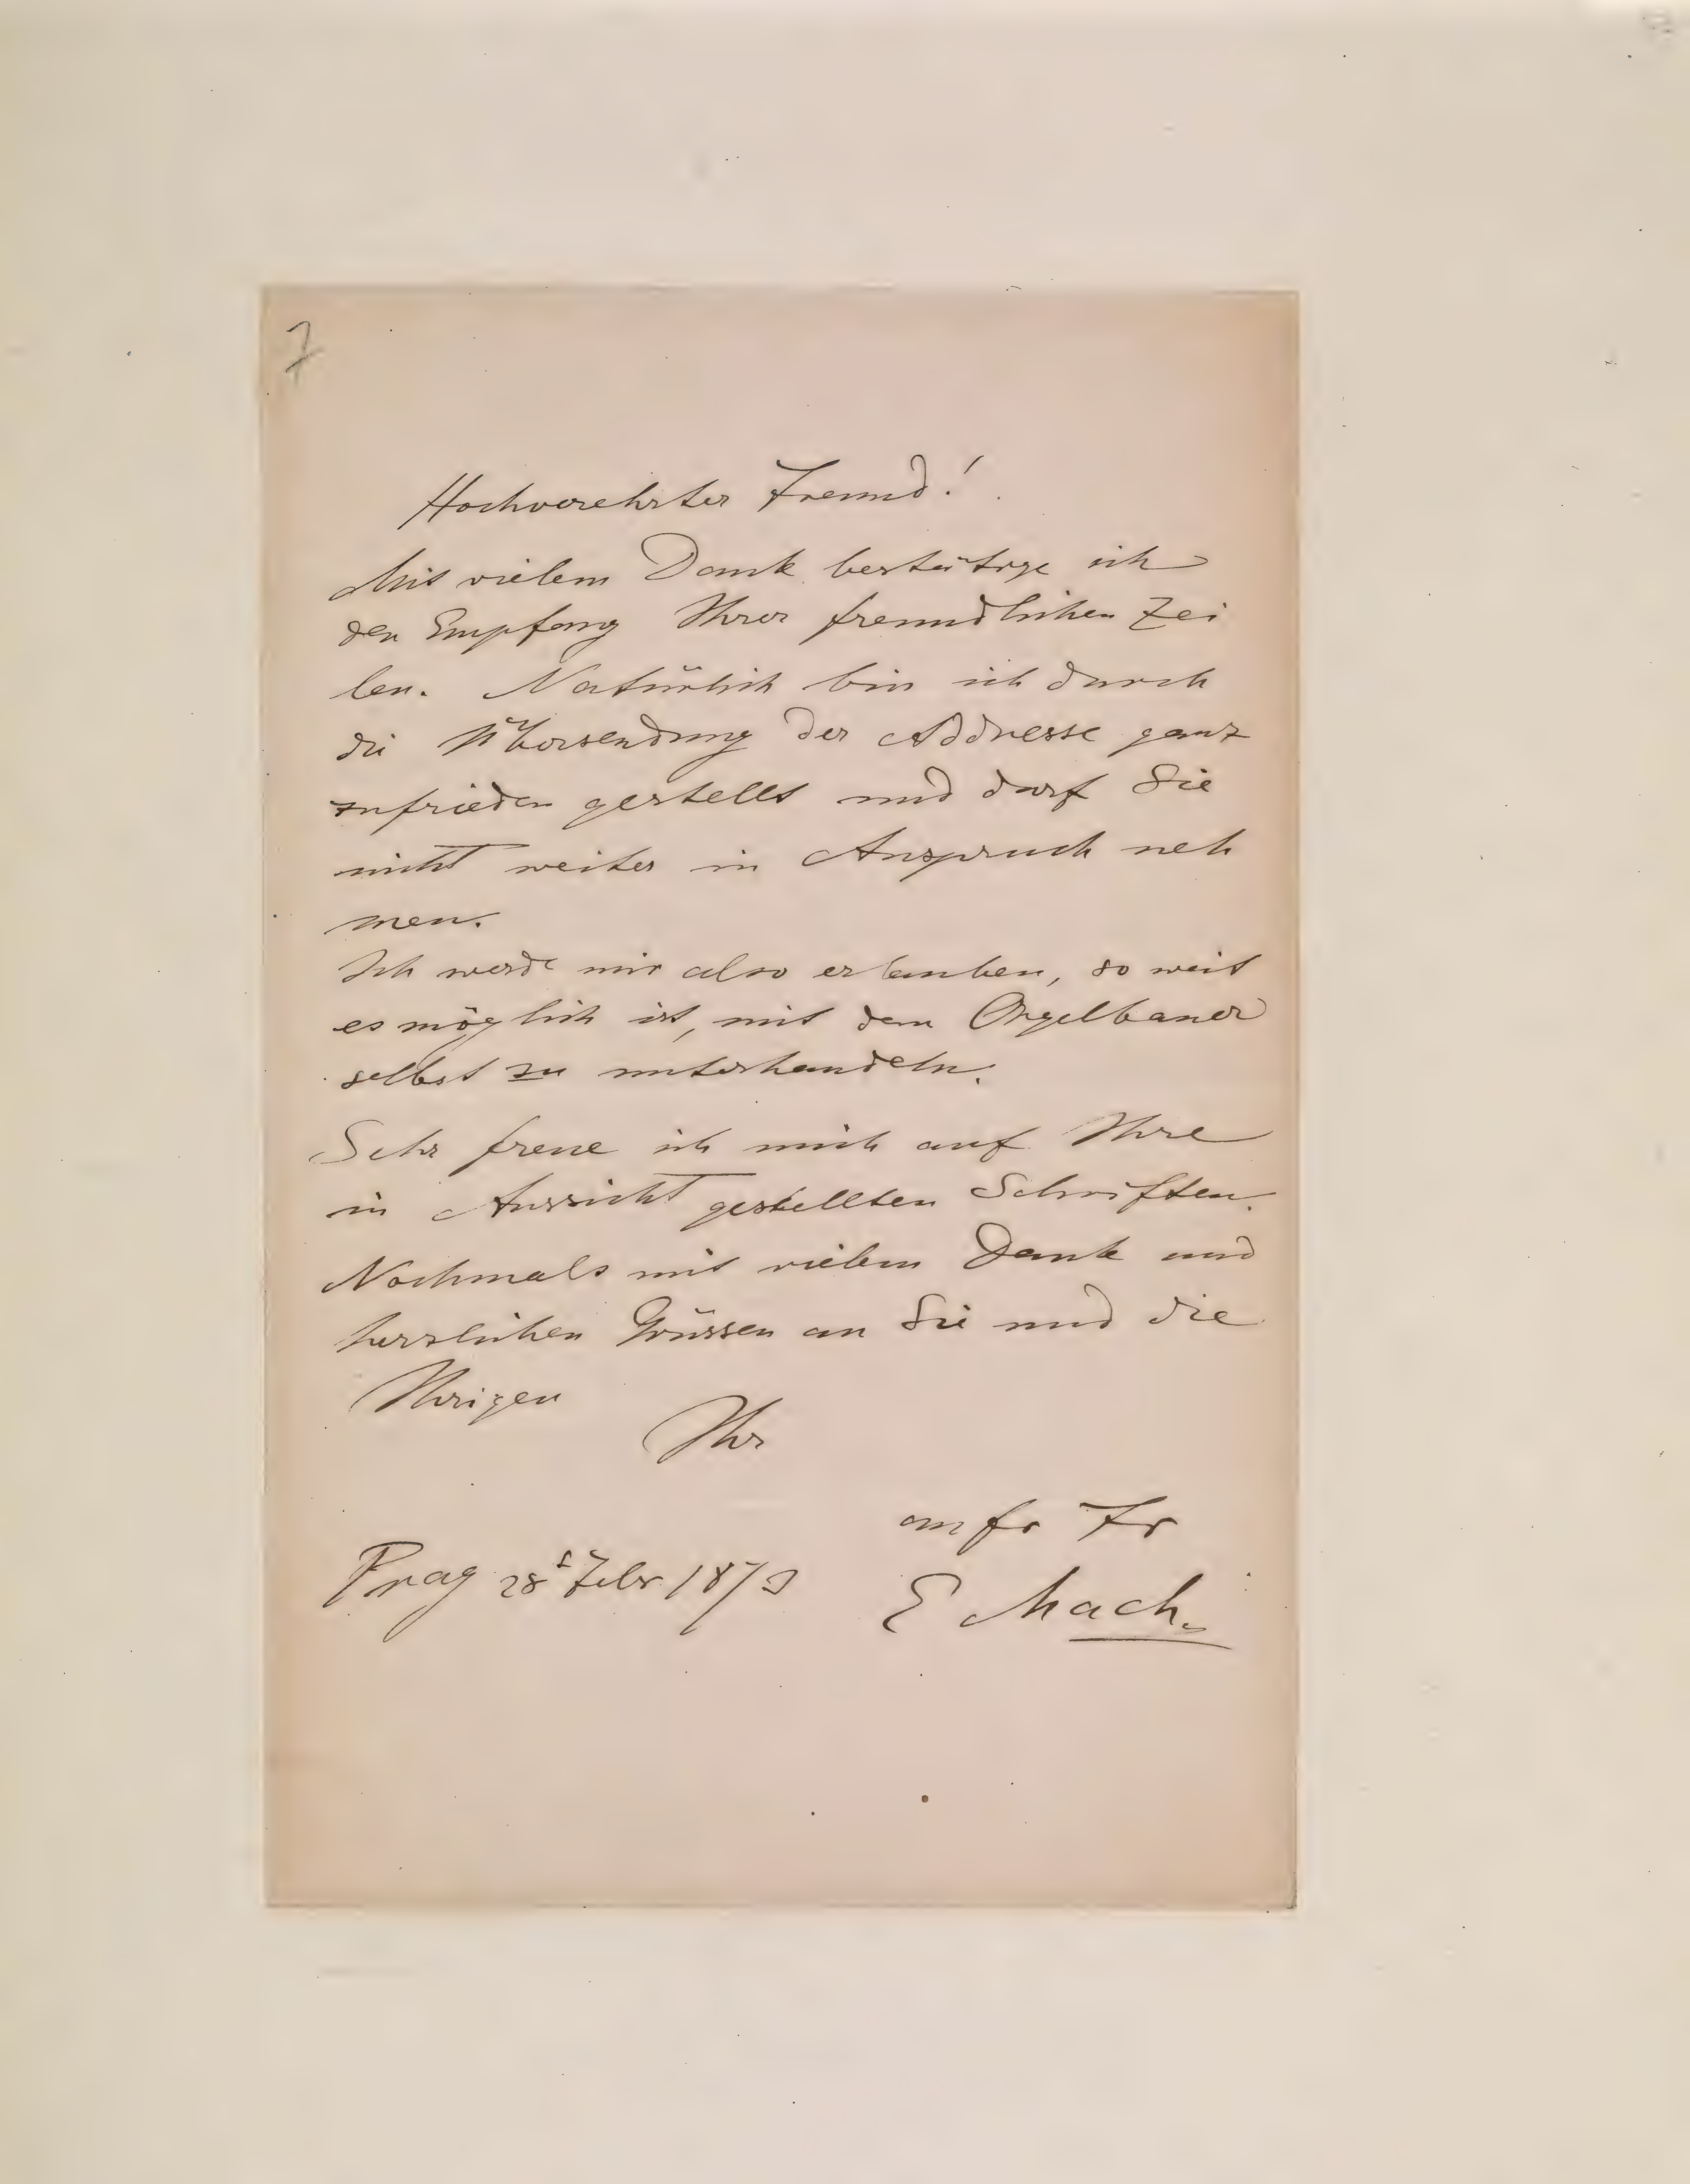 7
Hochverehrter Freund!
Mit vielem Dank bestätige ich
den Empfang Ihrer freundlichen Zei
len. Natürlich bin ich durch
die Übersendung der Addresse ganz
zufrieden gestellt und darf Sie
nicht weiter in Anspruch neh
men.
Ich werde mir also erlauben, so weit
es möglich ist, mit dem Orgelbauer
selbst zu unterhandeln.
Sehr freue ich mich auf Ihre
in Aussicht gestellten Schriften.
Nochmals mit vielem Dank und
herzlichen Grüssen an Sie und die
Ihrigen
Ihr
aufr Fr
Prag 28 Febr 1873
E Mach.